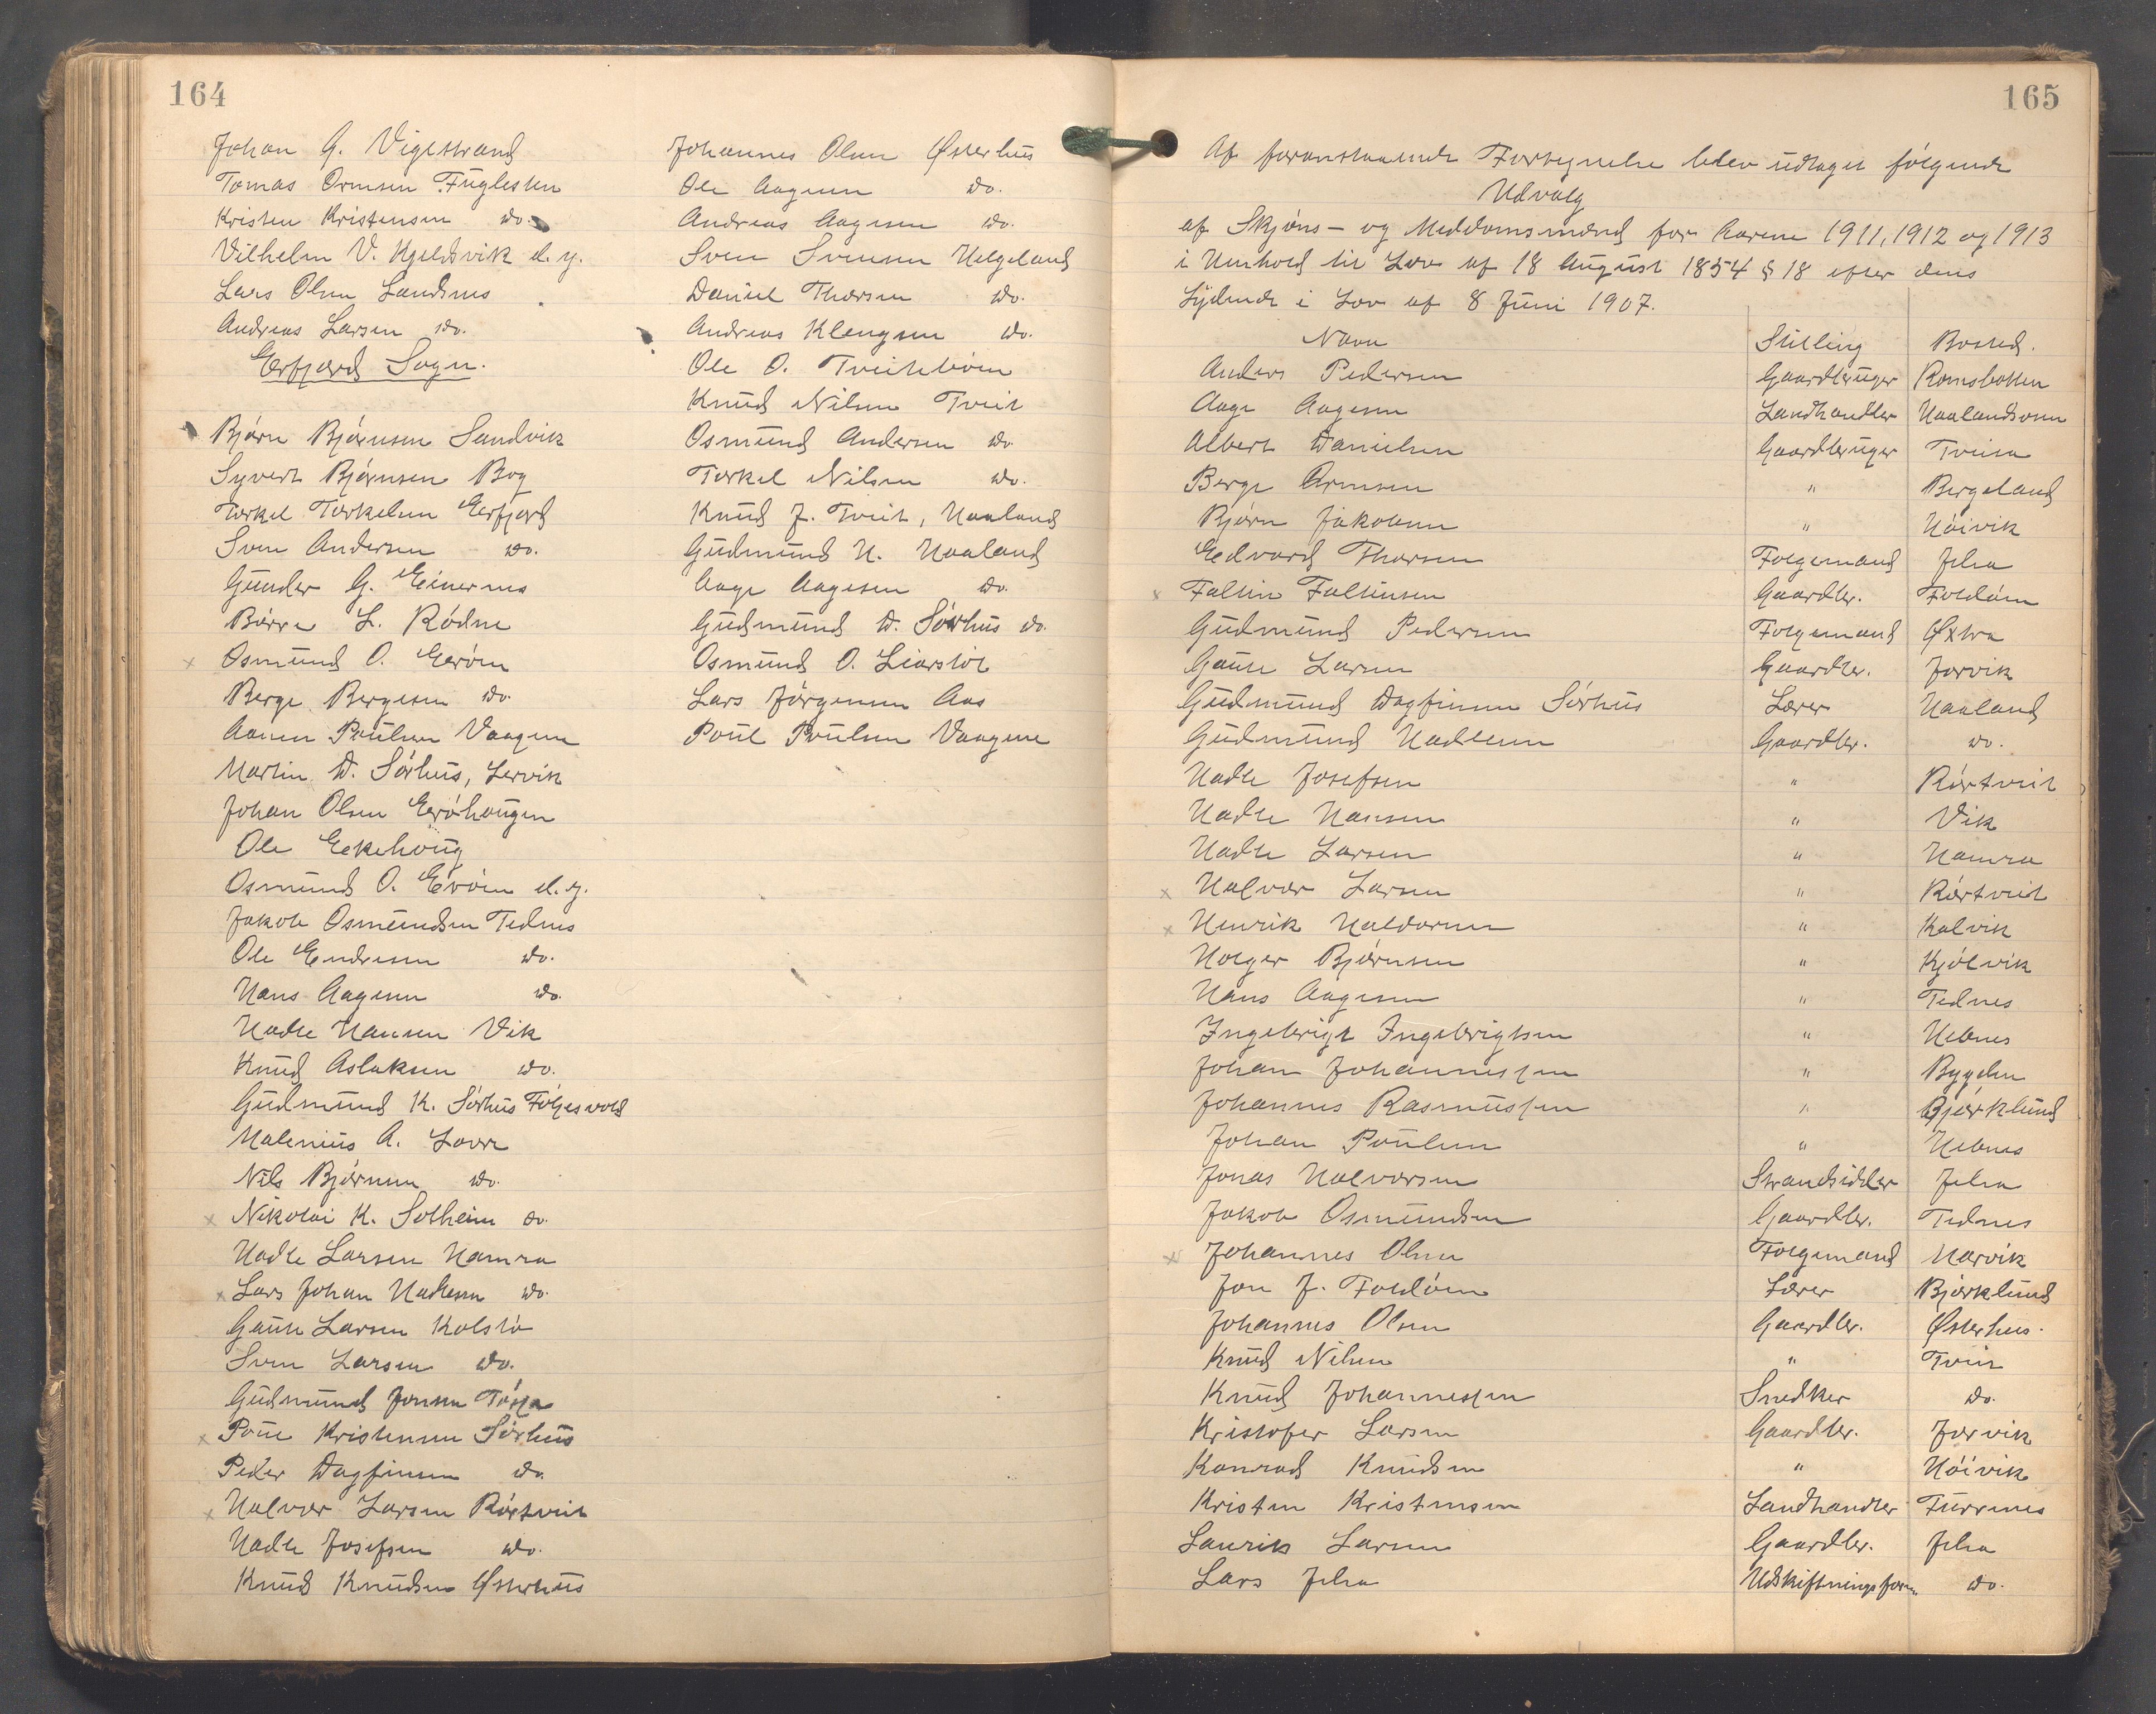 164
Johan G. Vigestrand
Tomas Ormsen Fuglesten
Kristen Kristensen do.
Vilhelm V. Hjeldsvik d. y.
Lars Olsen Landsnes
Andreas Larsen do.
Erfjord Sogn.
Bjørn Bjørnsen Sandvik
Syvert Bjørnsen Bog
Torkel Torkelsen Erfjord
Sven Andersen do.
Gunder G. Einernes
Børre L. Rødne
x Osmund O. Erøen
Berge Bergesen do.
Aanen Poulsen Vaagene
Martin D. Sørhus, Lervik
Johan Olsen Erøhaugen
Ole Eekehoug
Osmund O. Erøen d. y.
Jakob Osmundsen Tednes
Ole Endresen do.
Hans Aagesen do.
Hadle Hansen Vik
Knud Aslaksen do.
Gudmund K. Sørhus Følgesvold
Malenius A. Lovra
Nils Bjørnsen do.
x Nikolai K. Solheim do.
Hadle Larsen Hamra
x Lars Johan Hadlesen do.
Gaute Larsen Kolstø
Sven Larsen do.
Gudmund Jonsen Tøssa
x Poul Kristensen Sørhus
Peder Dagfinsen do.
x Halvor Larsen Rørtveit
Hadle Josefsen do.
Knud Knudsen Østerhus
Johannes Olsen Østerhus
Ole Aagesen do.
Andreas Aagesen do.
Sven Svensen Helgeland
Daniel Thorsen do.
Andreas Klengsen do.
Ole O. Tveitebøen
Knud Nilsen Tveit
Osmund Andersen do.
Torkel Nilsen do.
Knud J. Tveit, Haaland
Gudmund H. Haaland
Aage Aagesen do.
Gudmund D. Sørhus do.
Osmund O. Liarstøl
Lars Jørgensen Aas
Poul Poulsen Vaagene
165
Af foranstaaende Fortegnelse blev udtaget følgende
Udvalg
af Skjøns- og Meddomsmænd for Aarene 1911, 1912 og 1913
i Henhold til Lov af 18 August 1854 § 18 efter dens
Lydende i Lov af 8 Juni 1907.
Navn Stilling Bosted.
Anders Pedersen Gaardbruger Ramsbotten
Aage Aagesen Landhandler Haalandsosen
Albert Danielsen Gaardbruger Tveita
Berge Ormsen " Bergeland
Bjørn Jakobsen " Høivik
Edvard Thorsen Folgemand Jelsa
x Faltin Faltinsen Gaardbr. Foldøen
Gudmund Pedersen Folgemand Øxtra
Gaute Larsen Gaardbr. Jorvik
Gudmund Dagfinsen Sørhus Lærer Haaland
Gudmund Hadlesen Gaardbr. do.
Hadle Josefsen " Rørtveit
Hadle Hansen " Vik
Hadle Larsen " Hamra
x Halvor Larsen " Rørtveit
x Henrik Haldorsen " Kalvik
Holger Bjørnsen " Kjølvik
Hans Aagesen " Tednes
Ingebrigt Ingebrigtsen " Hebnes
Johan Johannessen " Bygden
Johannes Rasmussen " Bjørklund
Johan Poulsen " Hebnes
Jonas Halvorsen Strandsidder Jelsa
Jakob Osmundsen Gaardbr. Tednes
x Johannes Olsen Folgemand Marvik
Jon J. Foldøen Lærer Bjørklund
Johannes Olsen Gaardbr. Østerhus.
Knud Nilsen " Tveit
Knud Johannessen Snedker do.
Kristofer Larsen Gaardbr. Jorvik
Konrad Knudsen " Høivik
Kristen Kristensen Landhandler Furrenes
Laurits Larsen Gaardbr. Jelsa
Lars Jelsa Udskiftningsform. do.